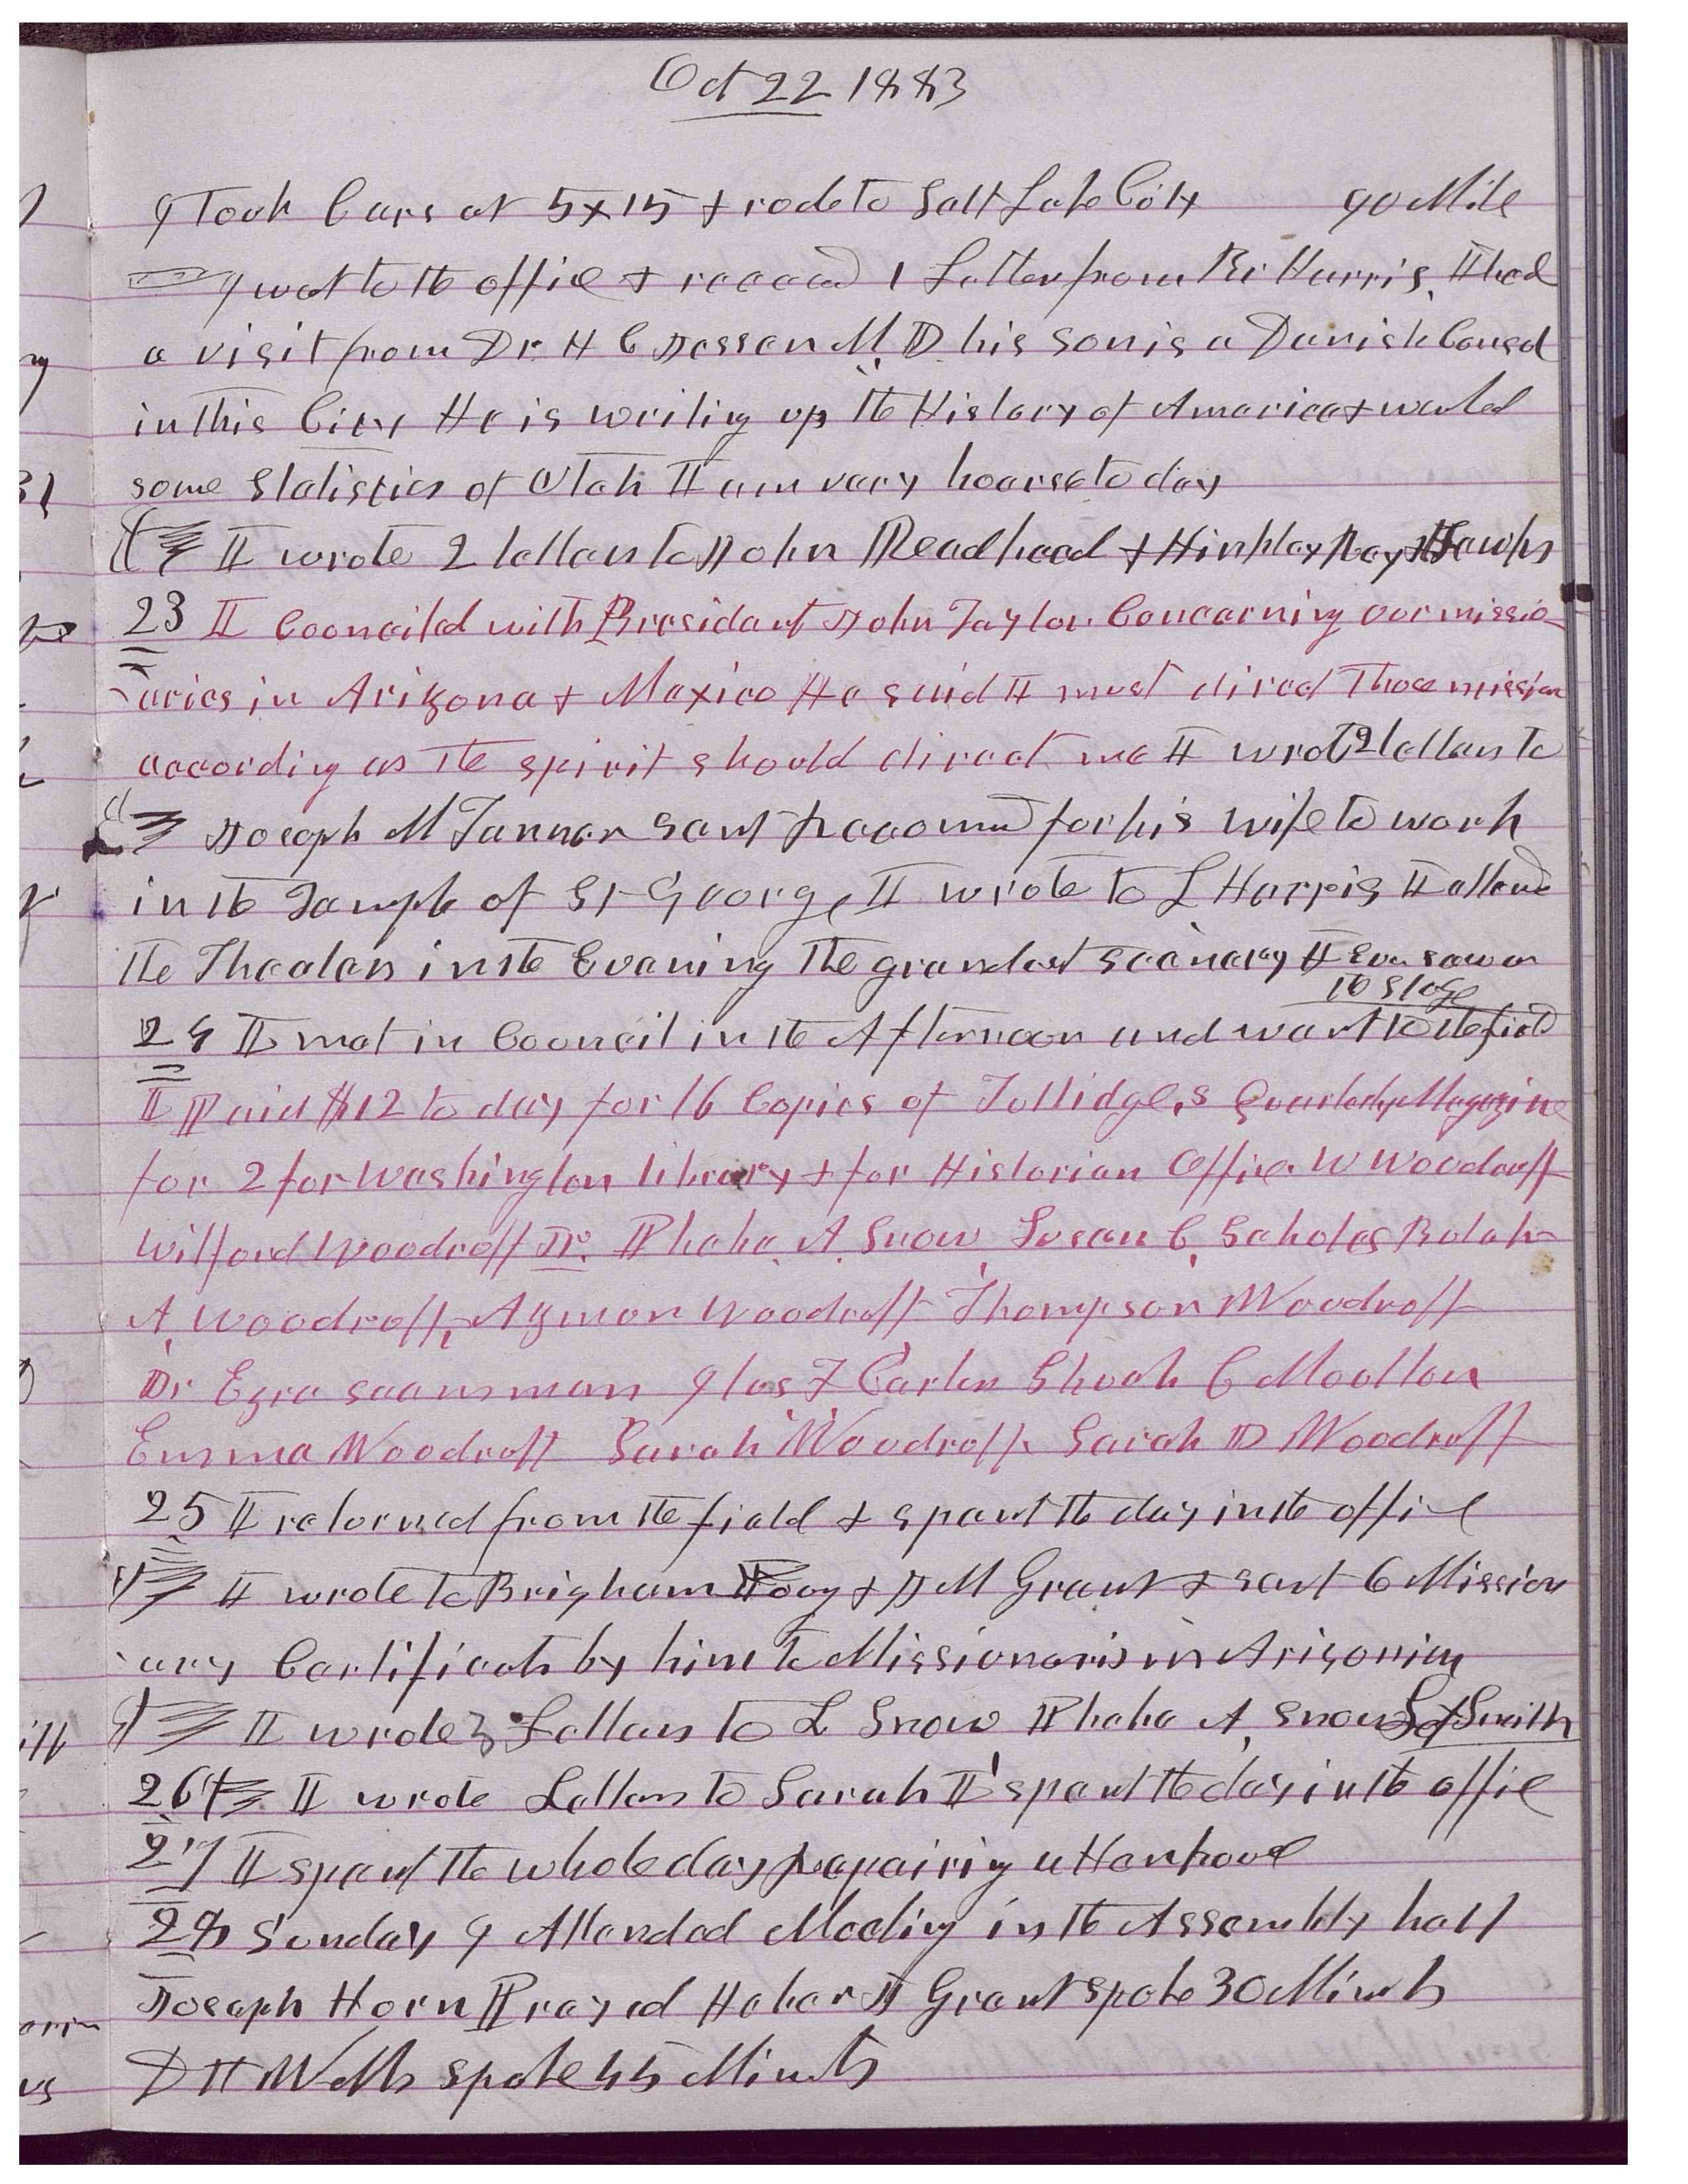 Oct 22 1883
I Took Cars at 5x15 & rode to Salt Lake City 90 Mile
I wet to the office & receed 1 Letter from Br Harris, I had
a visit from Dr H C Jessen M.D his son is a Danish Consel
in this City He is writing up the History of America & wanted
some Statistics of Utah I am very hoarse to day
I wrote 2 letters to John Readhead & Hinkley Ray &
23 I Councild with President John Taylor Concerning our missio-
-aries in Arizona & Mexico He said I must direct those mission
according as the spirit should direct me I wrote 2 letters to
Joseph M Tanner sent recomd for his wife to work
in the Temple of St George, I wrote to L Harris I attend
the Theater in the Evening The grandest scenery I Ever saw on
the stage
24 I met in Council in the Afternoon and went to the field
I Paid $12 to day for 16 Copies of Tullidge,s Quarterly Magazine
for 2 for Washington library & for Historian Office W Woodruff
Wilford Woodruff Jr. Phebe A Snow Susan C. Scholes Bulah
A Woodruff, Azmon Woodruff Thompson Woodruff
Dr Ezra Carlos Shook C Moulton
Emma Woodruff Sarah Woodruff Sarah D Woodruff
25 I returned from the field & spent the day in the office
I wrote to Brigham Young & J M Grant & sent 6 Mission
-ary Certificats by him to Missionaris in Arizonia
I wrote 3 Letters to L Snow Phebe A Snow Smith
26 I wrote Letters to Sarah I spent the day in the office
27 I spent the whole day repairing a Hen house
28 Sunday I Attended Meeting in the Assembly hall
Joseph Horn Prayed Heber J Grant spoke 30 Minuts
D H Wells spoke 45 Minuts